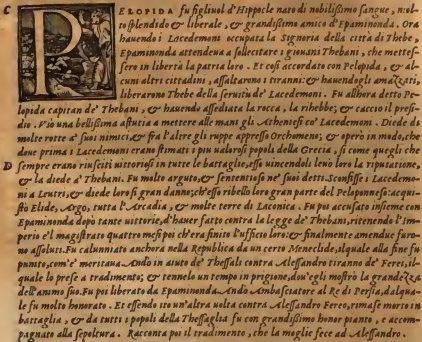 C
PELOPIDA fu figliuol d'Hippocle nato di nobilißimo sangue, mol-
to splendido & liberale, & grandißimo amico d'Epaminonda. Ora
hauendo i Lacedemoni occupata la Signoria della città di Thebe,
Epaminonda attendeua a sollecitare i giouani Thebani, che mettes-
sero in libertà la patria loro. Et così accordato con Pelopida, & al-
cuni altri cittadini, assaltarono i tiranni: & hauendogli amazzati,
liberarono Thebe dalla seruitù de' Lacedemoni. Fu allhora detto Pe-
lopida capitan de' Thebani, & hauendo assediata la rocca, la rihebbe; & cacciò il presi-
dio. Vsò una bellißima astutia a mettere alle mani gli Atheniesi co' Lacedemoni. Diede di
molte rotte a' suoi nimici, & fra l'altre gli ruppe appresso Orchomeno; & operò in modo, che
doue prima i Lacedemoni erano stimati i piu ualorosi popoli della Grecia, si come quegli che
D sempre erano riusciti uittoriosi in tutte le battaglie, esso uincendoli leuò loro la riputatione,
& la diede a' Thebani. Fu molto arguto, & sententioso ne' suoi detti. Sconfisse i Lacedemo-
ni a Leutri, & diede loro sì gran danno; ch'esso ribellò loro gran parte del Peloponneso: acqui-
stò Elide, Argo, tutta l'Arcadia, & molte terre di Laconica. Fu poi accusato insieme con
Epaminonda dopò tante uittorie, d'hauer fatto contra la legge de' Thebani, ritenendo l'Im-
perio e'l magistrato quattro mesi poi ch'era finito l'ufficio loro: & finalmente amendue furo-
no assoluti. Fu calunniato anchora nella Republica da un certo Meneclide, ilquale alla fine fu
punito, com'e' meritaua. Andò in aiuto de' Thessali contra Alessandro tiranno de' Ferei, il-
quale lo prese a tradimento; & tennelo un tempo in prigione, dou'egli mostrò la grandezza
dell'animo suo. Fu poi liberato da Epaminonda. Andò Ambasciatore al Re di Persia, dalqua-
le fu molto honorato. Et essendo ito un'altra uolta contra Alessandro Fereo, rimase morto in
battaglia, & da tutti i popoli della Thessaglia fu con grandißimo honor pianto, e accom-
pagnato alla sepoltura. Racconta poi il tradimento, che la moglie fece ad Alessandro.